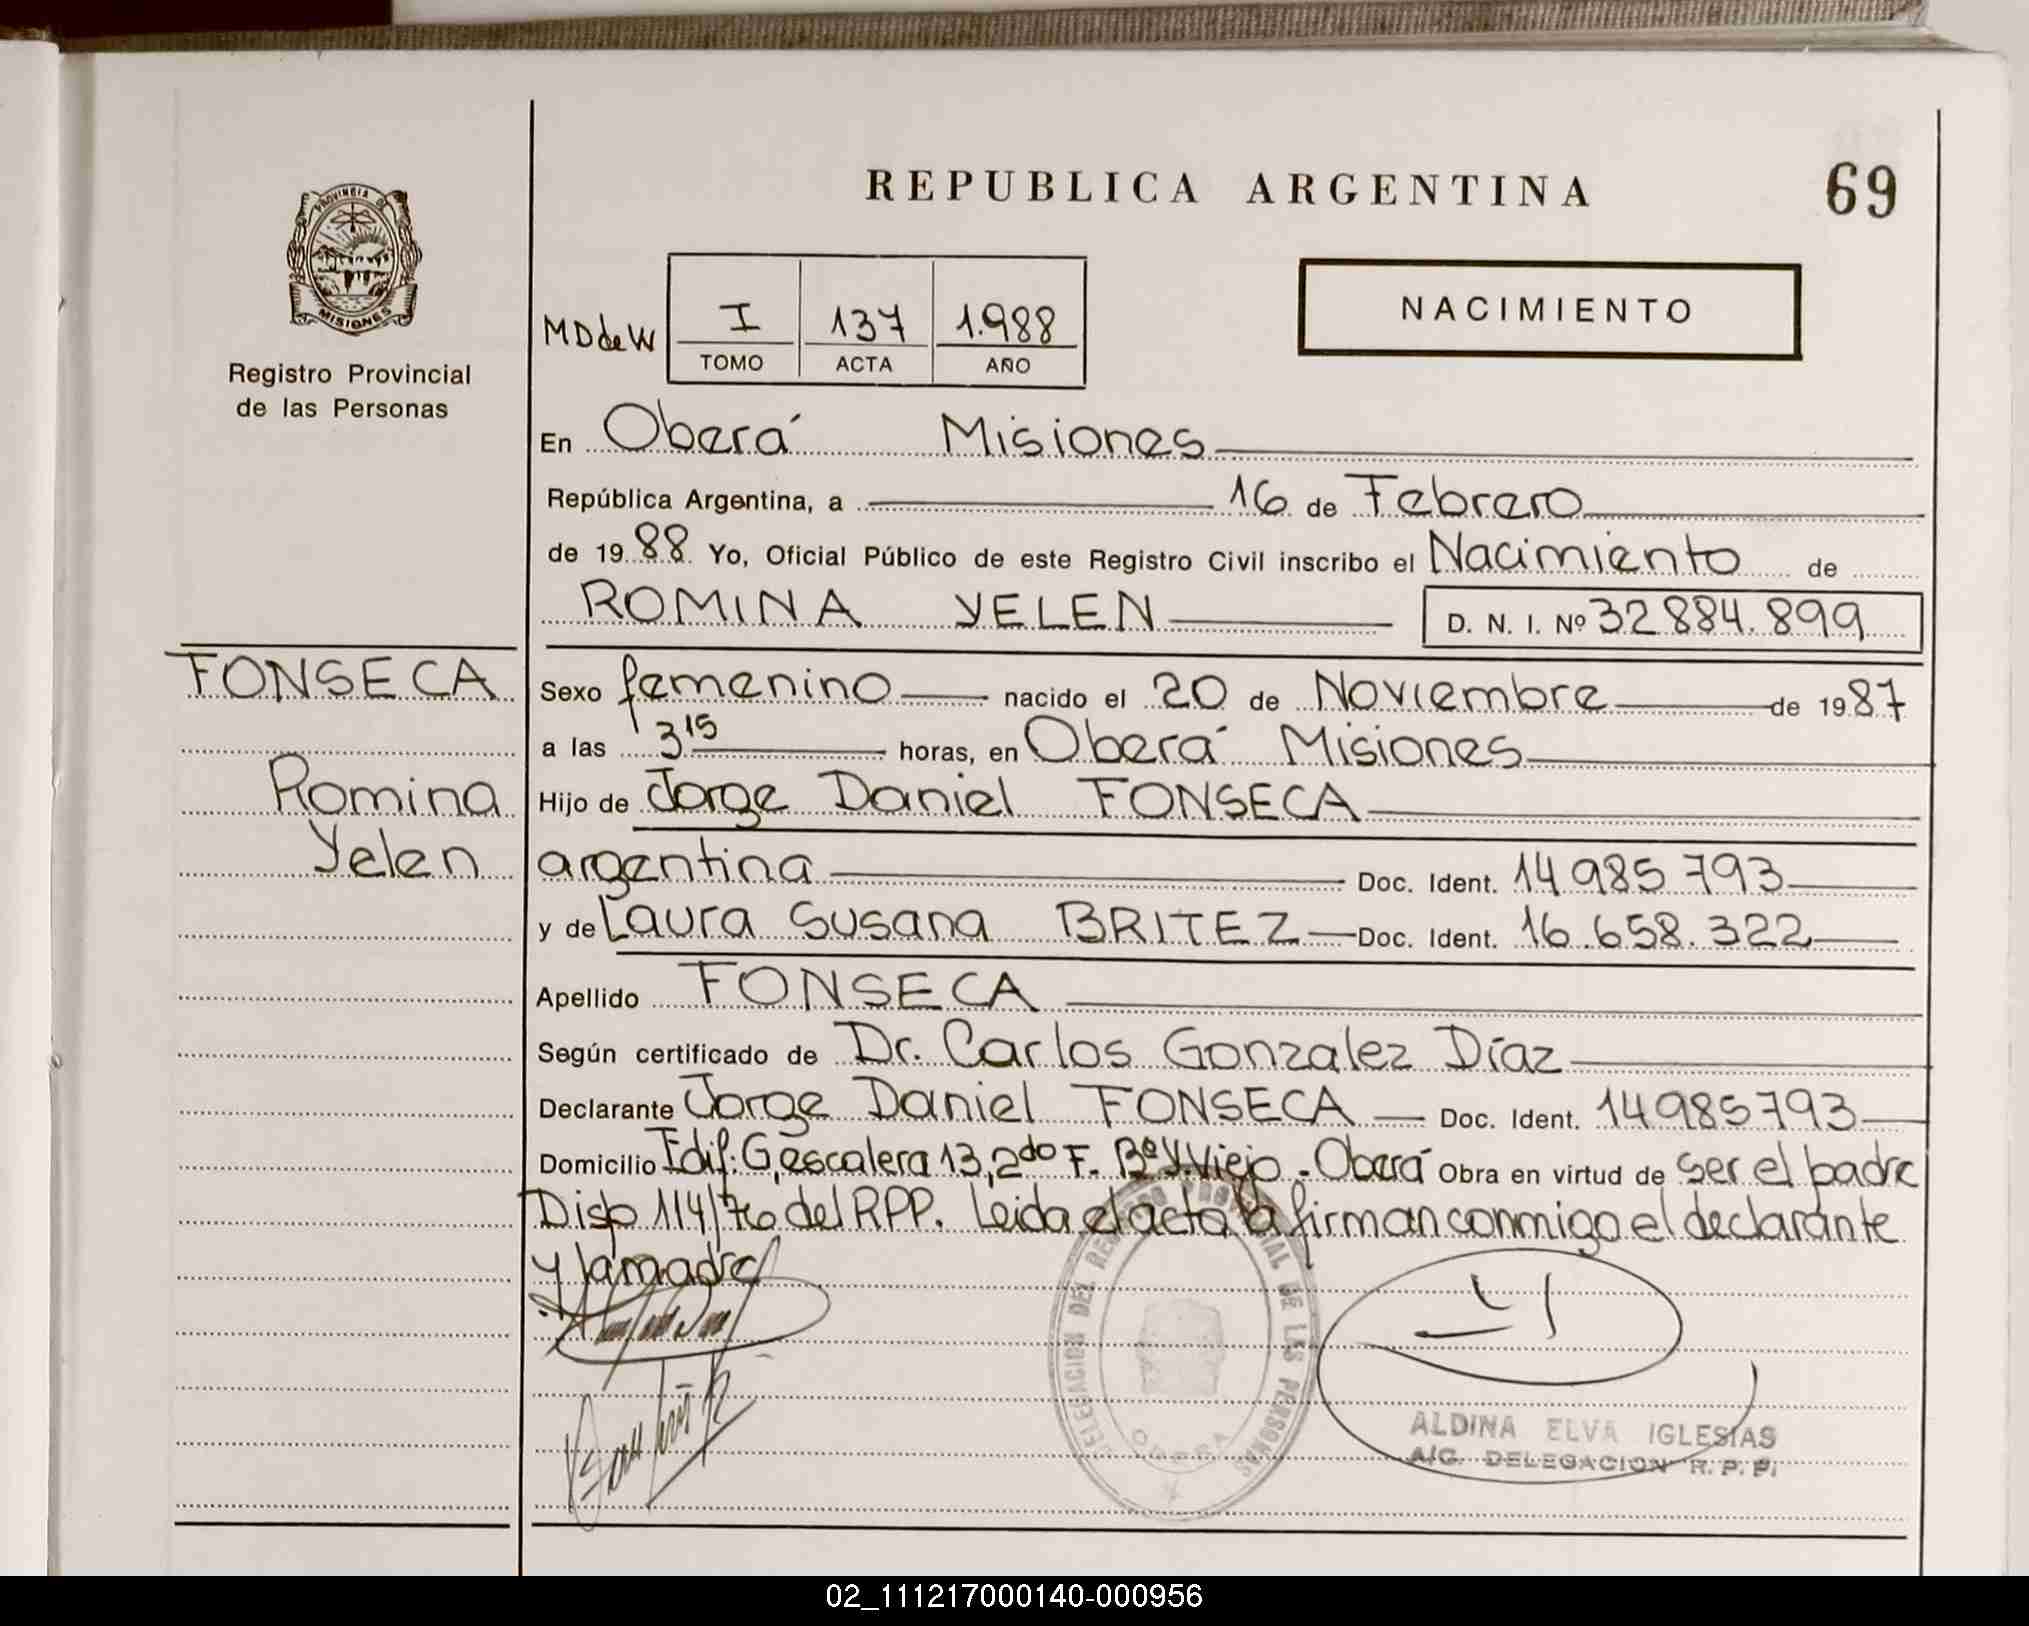 REPUBLICA ARGENTINA
69
PROVINCIA DE
MISIONES
Registro Provincial
de las Personas
MDdeW
I
137
1.988
TOMO
ACTA
AÑO
NACIMIENTO
En Oberá Misiones
República Argentina, a 16 de Febrero
de 1988 Yo, Oficial Público de este Registro Civil inscribo el Nacimiento de
ROMINA YELEN
D. N. I. Nº 32884.899
FONSECA
Romina
Yelen
Sexo femenino nacido el 20 de Noviembre de 1987
a las 3 15 horas, en Oberá Misiones
Hijo de Jorge Daniel FONSECA
argentina Doc. Ident. 14985793
y de Laura Susana BRITEZ Doc. Ident. 16.658.322
Apellido FONSECA
Según certificado de Dr. Carlos Gonzalez Díaz
Declarante Jorge Daniel FONSECA Doc. Ident. 14985793
Domicilio Edif: G, escalera 13, 2do F. Bº V.Viejo - Oberá Obra en virtud de ser el padre
Disp 114/76 del RPP. Leida el acta la firman conmigo el declarante
y la madre
DELEGACION DEL REGISTRO PROVINCIAL DE LAS PERSONAS
OBERA
ALDINA ELVA IGLESIAS
A/C. DELEGACION R. P. P.
02_111217000140-000956